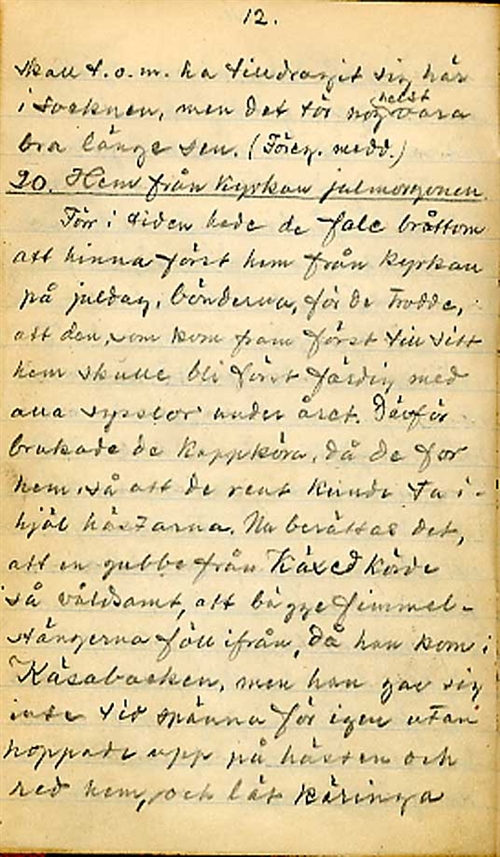 12.
skall t.o.m. ha tilldragit sig här
i socknen, men det tör nog helst vara
bra länge sen. (Föreg. medd.)
20. Hem från kyrkan julmorgonen.
Förr i tiden hade de fale bråttom
att hinna först hem från kyrkan
på juldag, bönderna, för de trodde,
att den, som kom fram först till sitt
hem skulle bli först färdig med
alla sysslor under året. Därför
brukade de kappköra, då de for
hem, så att de rent kunde ta i-
hjäl hästarna. Nu berättas det,
att en gubbe från Käxed körde
så våldsamt, att bägge fimmel-
stängerna föll ifrån, då han kom i
Käsabacken, men han gav sig
inte tid spänna för igen utan
hoppade upp på hästen och
red hem, och lät käringa